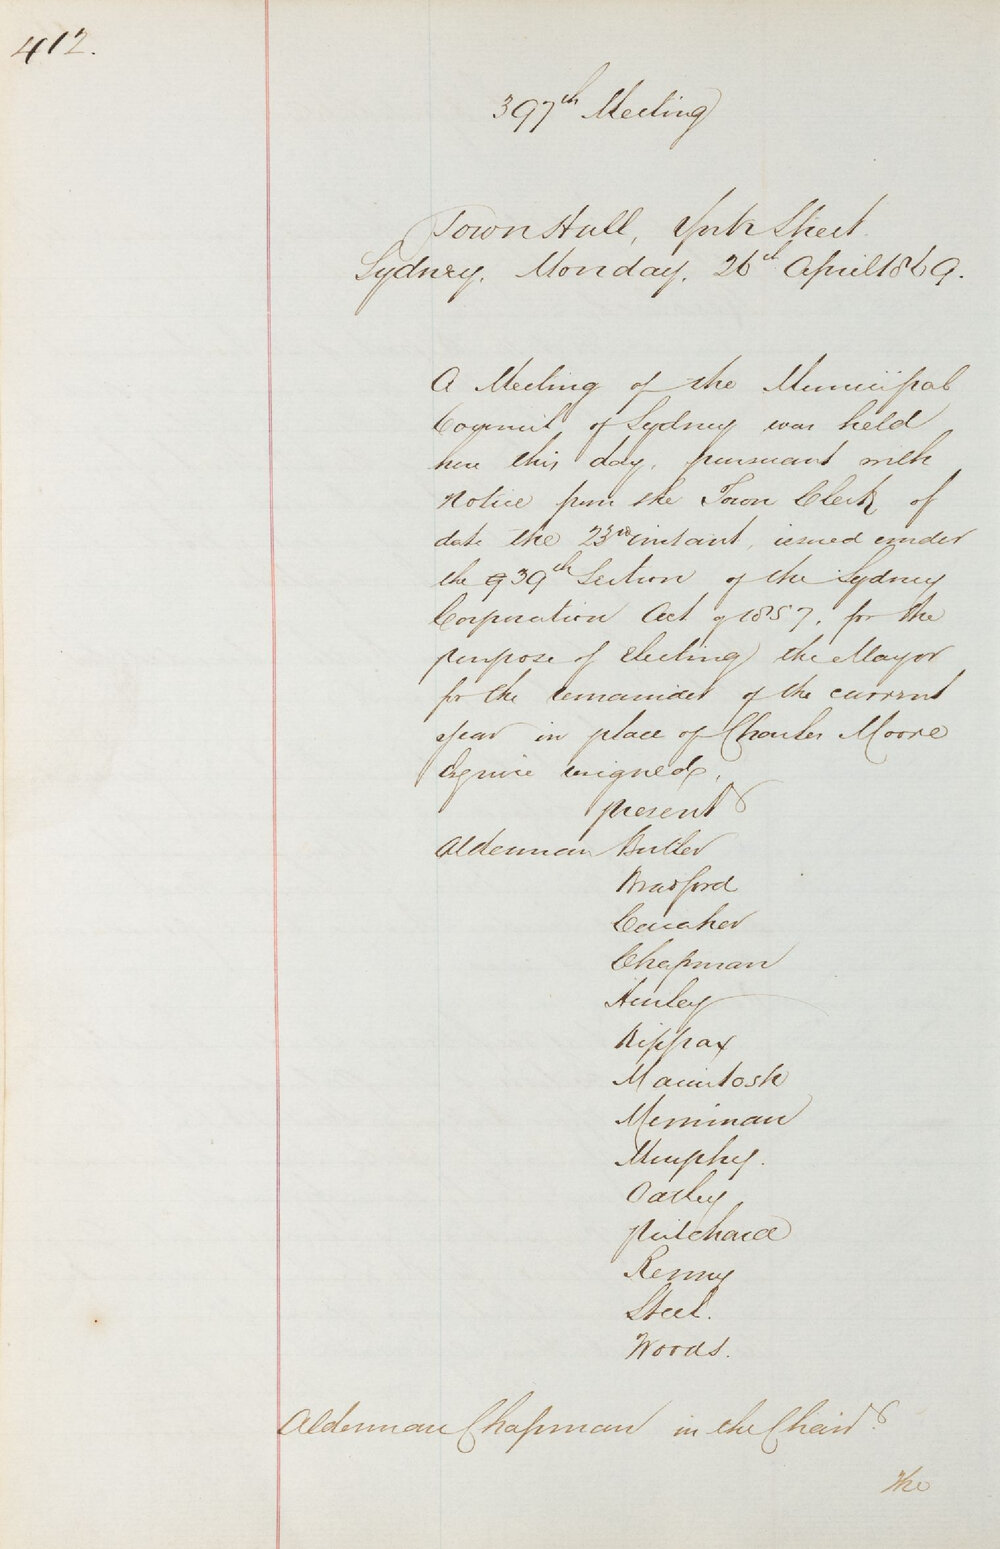 412.
397th Meeting
Town Hall, York Street.
Sydney, Monday, 26th April 1869.
A Meeting of the Municipal
Council of Sydney was held
here this day, pursuant with
notice from the Town Clerk of
date the 23rd instant, issued under
the 39th Section of the Sydney
Corporation Act of 1857, for the
purpose of electing the Mayor
for the remainder of the current
year in place of Charles Moore
Esquire resigned,
present
Alderman Butler
Bradford
Caraher
Chapman
Hurley
Kippax
Macintosh
Merriman
Murphy.
Oatley
Pritchard
Renny
Steel.
Woods.
Alderman Chapman in the Chair
The